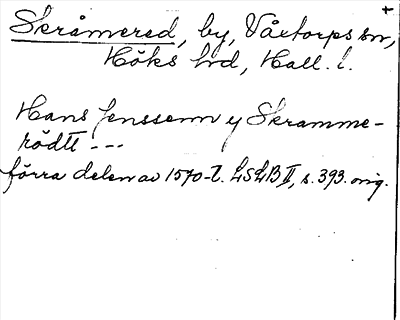 Skråmered, by, Våxtorps sn, +
Höks hd, Hall. l.
Hans Jenssenn y Skramme-
rödtt ---
förra delen av 1570-t. LSLB II, s. 393. orig.